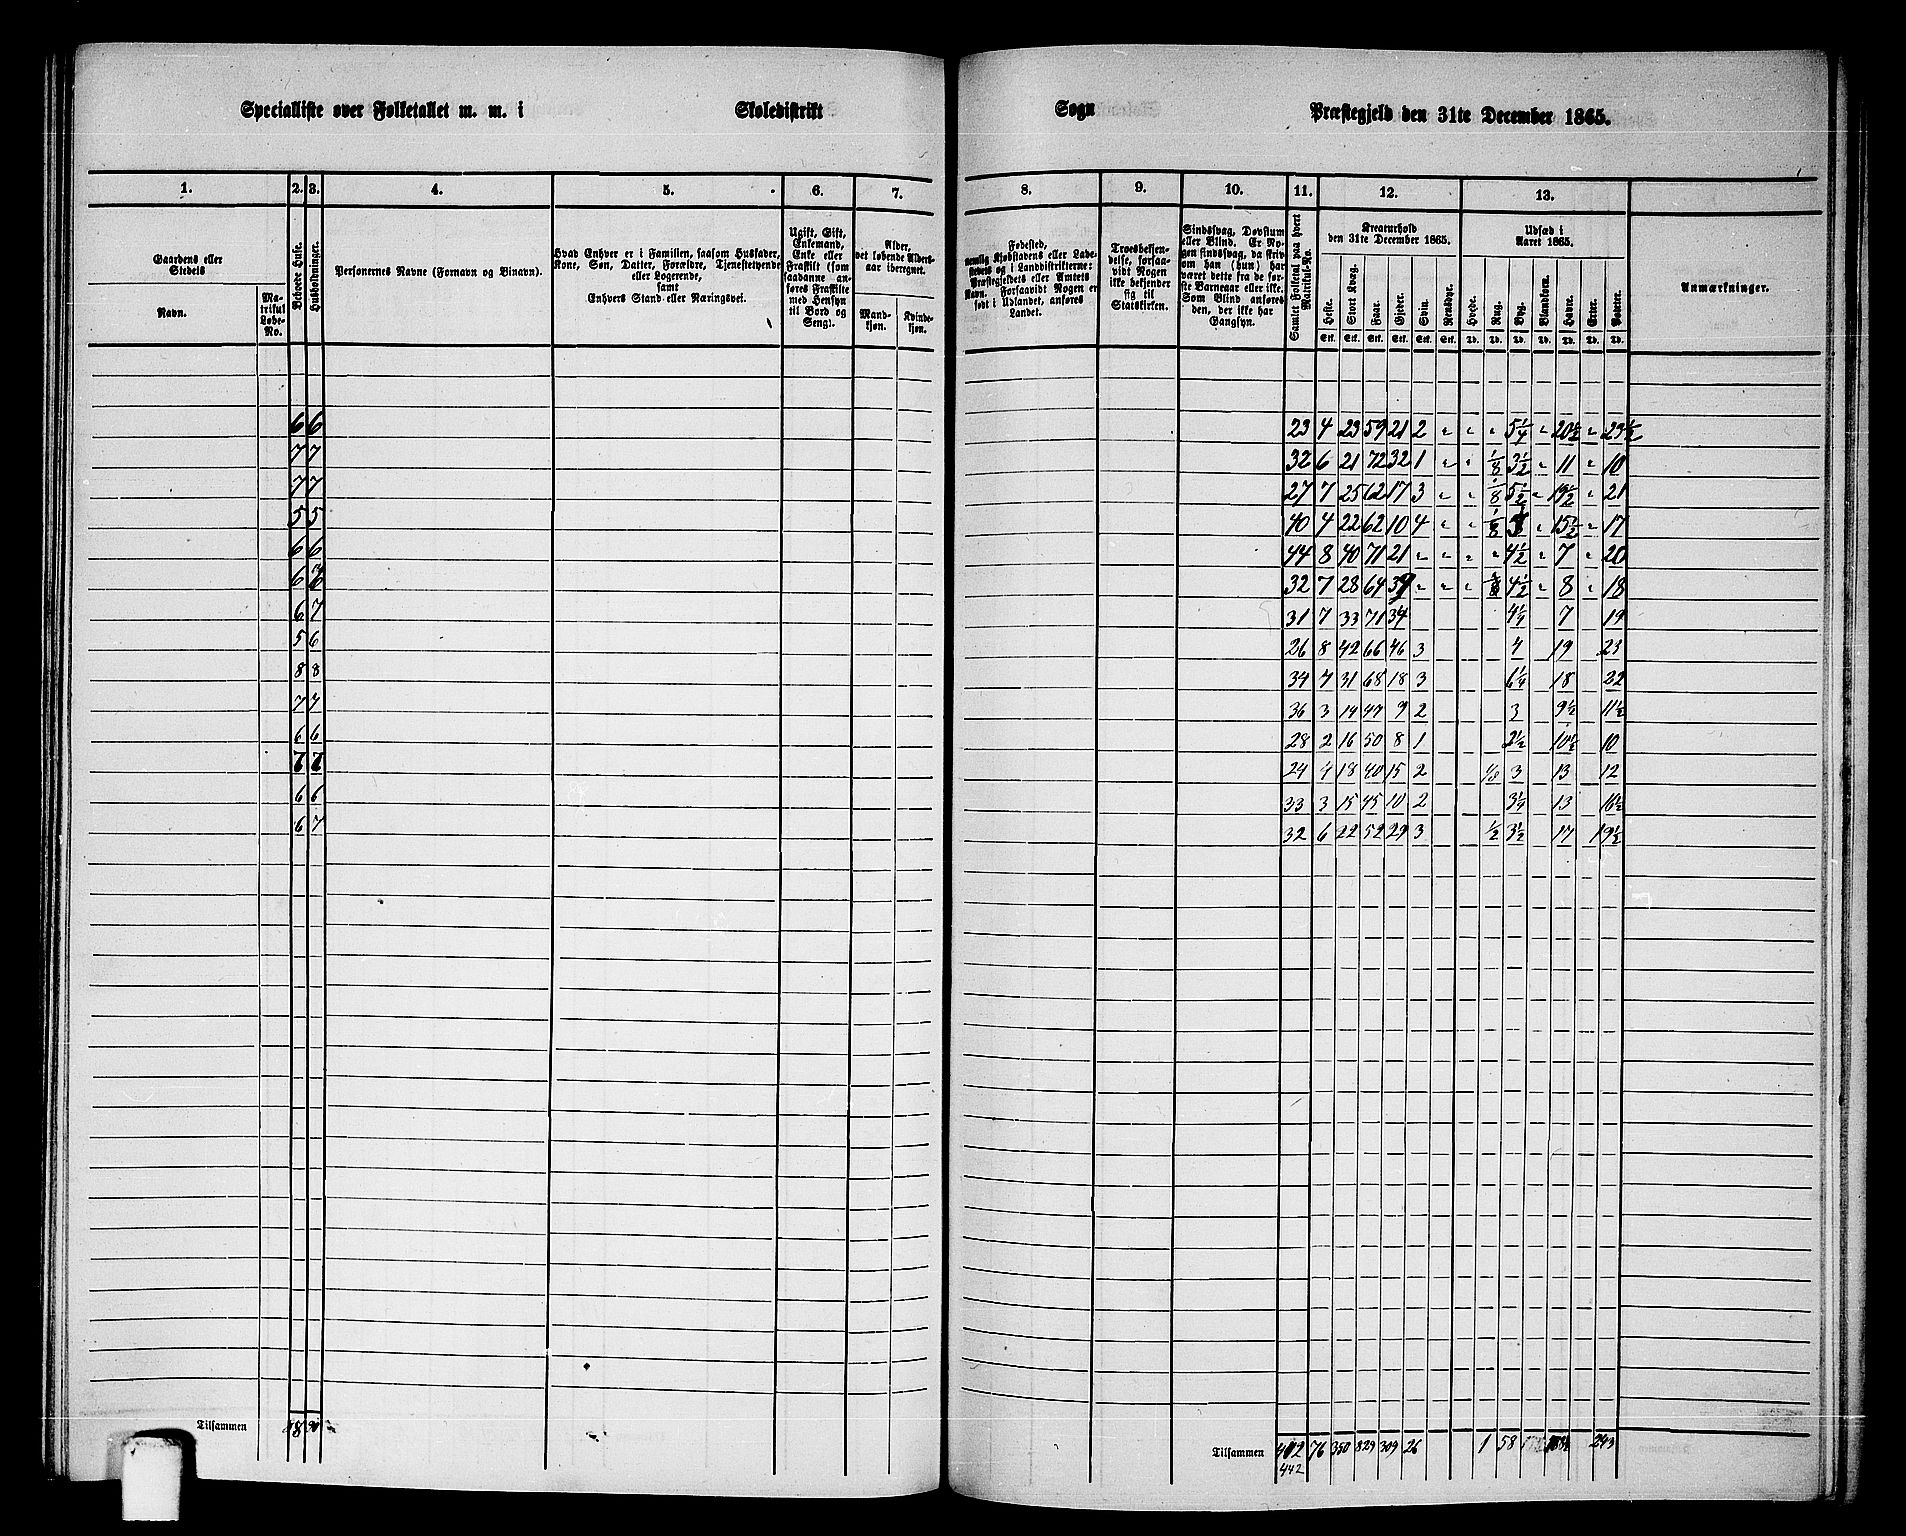 Specialliste over Folketallet m. m. i Skoledistrikt Sogn Præstegjeld den 31te December 1865.
1. 2. 3. 4. 5. 6. 7. 8. 9. 10. 11. 12. 13.
Gaardens eller Stedets
Navn.
Matrikul Løbe-No.
Beboede Huse.
Husholdninger.
Personernes Navne (Fornavn og Binavn).
Hvad Enhver er i Familien, saasom Husfader,
Kone, Søn, Datter, Forældre, Tjenestetyende
eller Logerende,
samt
Enhvers Stand eller Næringsvei.
Ugift, Gift,
Enkemand,
Enke eller
Fraskilt (som
saadanne an-
føres Fraskilte
med Hensyn
til Bord og
Seng).
Alder,
det løbende Alders-
aar iberegnet.
Mand-
kjøn.
Kvinde-
kjøn.
Fødested,
nemlig Kjøbstadens eller Lade-
stedets og i Landdistrikterne:
Præstegjeldets eller Amtets
Navn. Forsaavidt Nogen er
født i Udlandet, anføres
Landet.
Troesbekjen-
delse, forsaa-
vidt Nogen
ikke bekjender
sig til
Statskirken.
Sindssvag, Døvstum
eller Blind. Er No-
gen sindssvag, da skriv
om han (hun) har
været dette fra de før-
ste Barneaar eller ikke.
Som Blind anføres
den, der ikke har
Gangsyn.
Samlet Folketal paa hvert
Matrikul-No.
Kreaturhold
den 31te December 1865.
Heste. Stort Kvæg. Faar. Gjeder. Svin. Rensdyr.
Stk. Stk. Stk. Stk. Stk. Stk.
Udsæd i
Aaret 1865.
Hvede. Rug. Byg. Blandkorn. Havre. Erter. Poteter.
Td. Td. Td. Td. Td. Td. Td.
Anmærkninger.
6 6 23 4 23 59 21 2 " " " 5¼ " 20½ " 23½
7 7 32 6 21 72 32 1 " " ⅛ 3½ " 11 " 10
7 7 27 7 25 62 17 3 " " ⅛ 5½ " 19½ " 21
5 5 40 4 22 62 10 4 " " ⅛ " 15½ " 17
6 6 44 8 40 71 21 " " " " 4½ " 7 " 20
6 32 7 28 64 " " " 4½ " 8 " 18
6 7 31 7 33 71 34 4¼ 7 19
5 6 26 8 42 66 46 3 4 19 23
8 8 34 7 31 68 18 3 6¼ 18 22
7 7 36 3 14 47 9 2 3 9½ 11½
6 6 28 2 16 50 8 1 2½ 10½ 10
7 7 24 4 18 40 15 2 ⅛ 3 13 12
6 6 33 3 15 45 10 2 3¼ 13 16½
6 7 32 6 22 52 29 3 ½ 3½ 17 19½
Tilsammen 88 90 Tilsammen 76 350 829 309 26 1 58 243
442